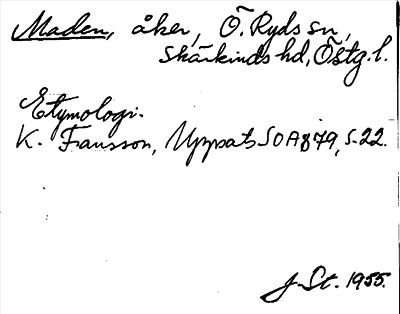 Maden, åker, Ö. Ryds sn,
Skärkinds hd, Östg. l.
Etymologi.
K. Fansson, Uppsats SOA 879, s. 22.
J. St. 1955.